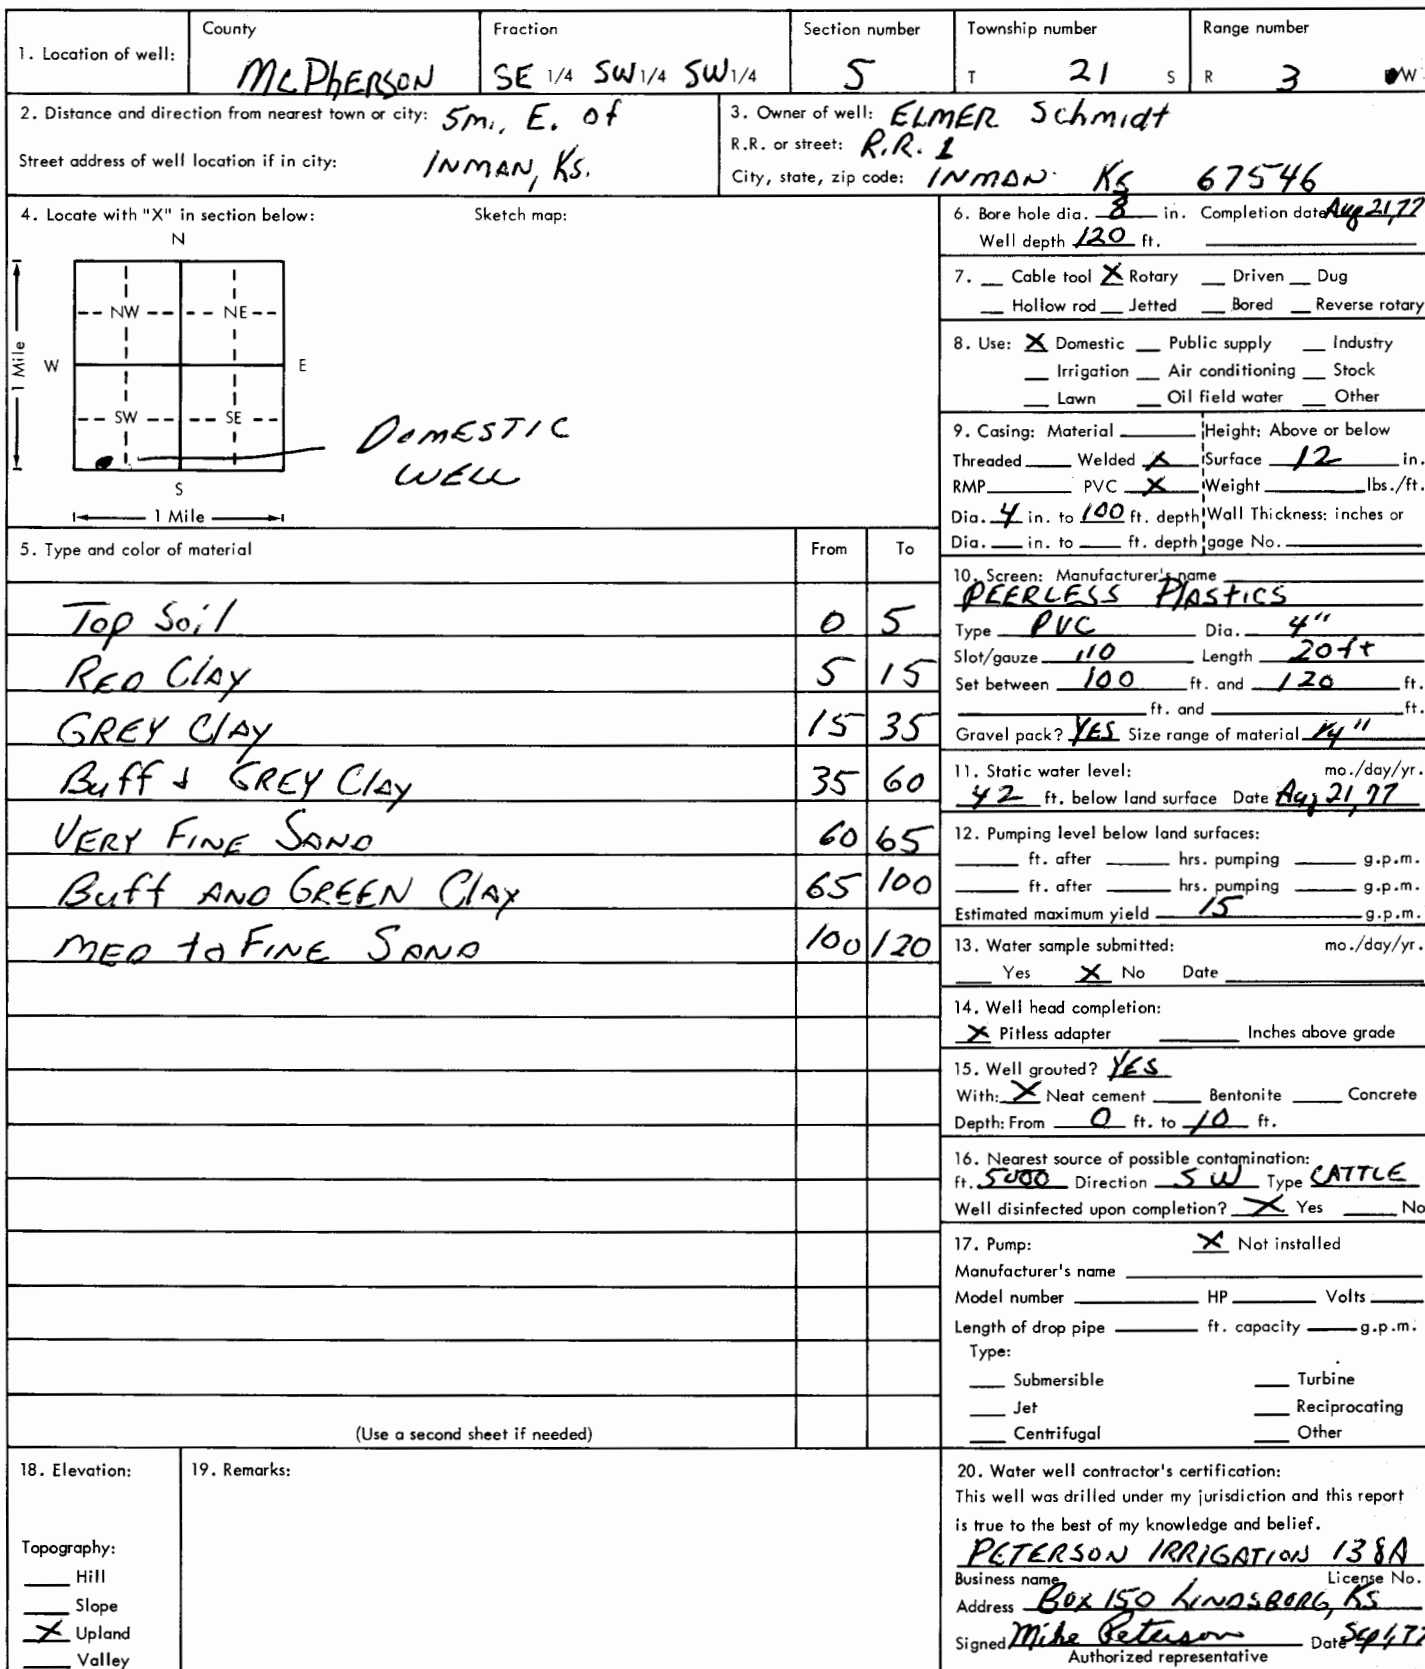 1. Location of well:
County
McPHERSON
Fraction
SE 1/4 SW 1/4 SW 1/4
Section number
5
Township number
T 21 S
Range number
R 3 W
2. Distance and direction from nearest town or city: 5mi, E. of
Street address of well location if in city: INMAN, Ks.
3. Owner of well: ELMER Schmidt
R.R. or street: R.R. 1
City, state, zip code: INMAN Ks 67546
4. Locate with "X" in section below: Sketch map:
N
NW NE
W E
1 Mile
SW SE
S
1 Mile
DOMESTIC
WELL
5. Type and color of material From To
Top Soil 0 5
RED Clay 5 15
GREY Clay 15 35
Buff & GREY Clay 35 60
VERY FINE SAND 60 65
Buff AND GREEN Clay 65 100
MED to FINE SAND 100 120
(Use a second sheet if needed)
6. Bore hole dia. 8 in. Completion date Aug 21, 77
Well depth 120 ft.
7. __ Cable tool X Rotary __ Driven __ Dug
__ Hollow rod __ Jetted __ Bored __ Reverse rotary
8. Use: X Domestic __ Public supply __ Industry
__ Irrigation __ Air conditioning __ Stock
__ Lawn __ Oil field water __ Other
9. Casing: Material ____ Height: Above or below
Threaded ____ Welded X Surface 12 in.
RMP ____ PVC X Weight ____ lbs./ft.
Dia. 4 in. to 100 ft. depth Wall Thickness: inches or
Dia. ____ in. to ____ ft. depth gage No. ____
10. Screen: Manufacturer's name
PEERLESS PlASTICS
Type PVC Dia. 4"
Slot/gauze 110 Length 20 ft
Set between 100 ft. and 120 ft.
____ ft. and ____ ft.
Gravel pack? YES Size range of material 1/4"
11. Static water level: mo./day/yr.
42 ft. below land surface Date Aug 21, 77
12. Pumping level below land surfaces:
____ ft. after ____ hrs. pumping ____ g.p.m.
____ ft. after ____ hrs. pumping ____ g.p.m.
Estimated maximum yield 15 g.p.m.
13. Water sample submitted: mo./day/yr.
__ Yes X No Date ____
14. Well head completion:
X Pitless adapter ____ Inches above grade
15. Well grouted? YES
With: X Neat cement ____ Bentonite ____ Concrete
Depth: From 0 ft. to 10 ft.
16. Nearest source of possible contamination:
ft. 5000 Direction SW Type CATTLE
Well disinfected upon completion? X Yes ____ No
17. Pump: X Not installed
Manufacturer's name ____
Model number ____ HP ____ Volts ____
Length of drop pipe ____ ft. capacity ____ g.p.m.
Type:
__ Submersible __ Turbine
__ Jet __ Reciprocating
__ Centrifugal __ Other
18. Elevation:
Topography:
__ Hill
__ Slope
X Upland
__ Valley
19. Remarks:
20. Water well contractor's certification:
This well was drilled under my jurisdiction and this report
is true to the best of my knowledge and belief.
PETERSON IRRIGATION 138A
Business name License No.
Address BOX 150 LINDSBORG, KS
Signed Mike Peterson Date Sep 1, 77
Authorized representative